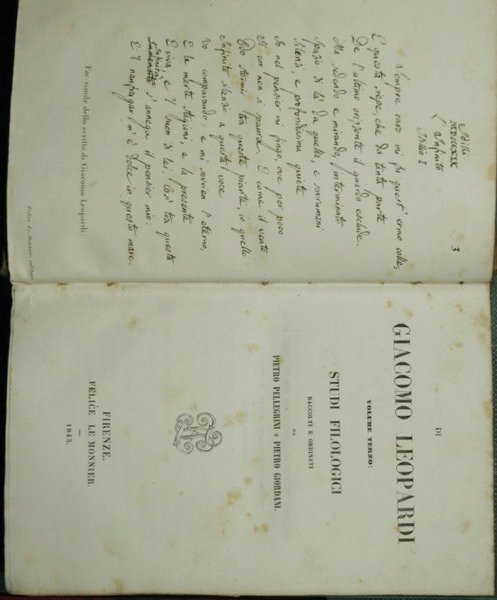 Idilli
MDCCCXIX
L'Infinito
Idillio I
3
Sempre caro mi fu quest'ermo colle,
E questa siepe, che da tanta parte
De l'ultimo orizzonte il guardo esclude.
Ma sedendo e mirando, interminato
Spazio di là da quella, e sovrumani
Silenzi, e profondissima quiete
Io nel pensier mi fingo, ove per poco
Il cor non si spaura. E come il vento
Odo stormir tra queste piante, io quello
Infinito silenzio a questa voce
Vo comparando, e mi sovvien l'eterno,
E le morte stagioni, e la presente
E viva, e 'l suon di lei. Così tra questa
Infinità
Immensità s'annega il pensier mio:
E 'l naufragar m'è dolce in questo mare.
Fac-simile dello scritto di Giacomo Leopardi.
Felice Le Monnier, editore.
DI
GIACOMO LEOPARDI
VOLUME TERZO:
STUDI FILOLOGICI
RACCOLTI E ORDINATI
DA
PIETRO PELLEGRINI e PIETRO GIORDANI.
FIRENZE.
FELICE LE MONNIER.
1845.